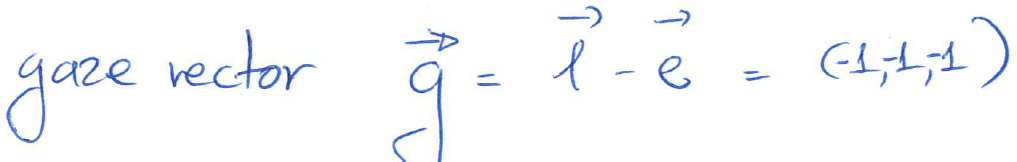 gaze vector $\vec{g} = \vec{l} - \vec{e} = (-1,-1,-1)$